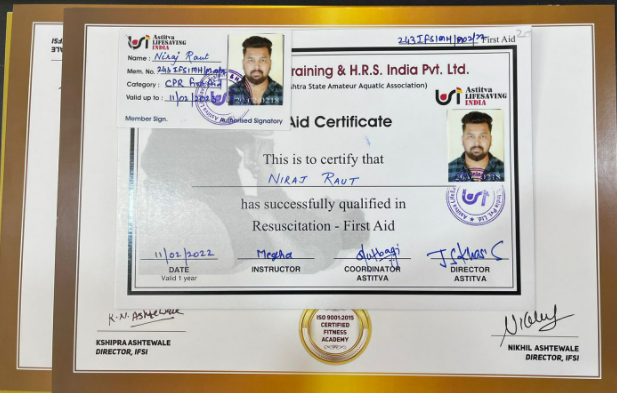 Astitva
LIFESAVING
INDIA
Name : Niraj Raut
Mem. No.
Category : CPR First Aid
Valid up to : 11/02/2023
Member Sign. Authorised Signatory
First Aid
raining & H.R.S. India Pvt. Ltd.
htra State Amateur Aquatic Association)
Astitva
LIFESAVING
INDIA
Aid Certificate
This is to certify that
NIRAJ RAUT
has successfully qualified in
Resuscitation - First Aid
11/02/2022
DATE INSTRUCTOR COORDINATOR DIRECTOR
Valid 1 year ASTITVA ASTITVA
K.N. Ashtewale
KSHIPRA ASHTEWALE
DIRECTOR, IFSI
ISO 9001:2015
CERTIFIED
FITNESS
ACADEMY
NIKHIL ASHTEWALE
DIRECTOR, IFSI